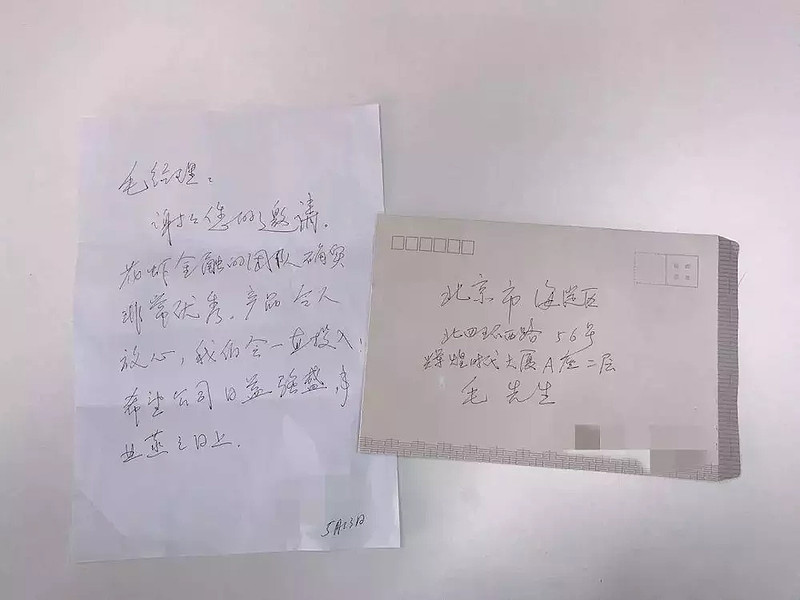 毛经理：
谢谢您的邀请，
花虾金融的团队确实
非常优秀，产品令人
放心，我们会一直投入！
希望公司日益强盛，事
业蒸蒸日上.
5月13日
北京市海淀区
北四环西路56号
辉煌时代大厦A座二层
毛先生